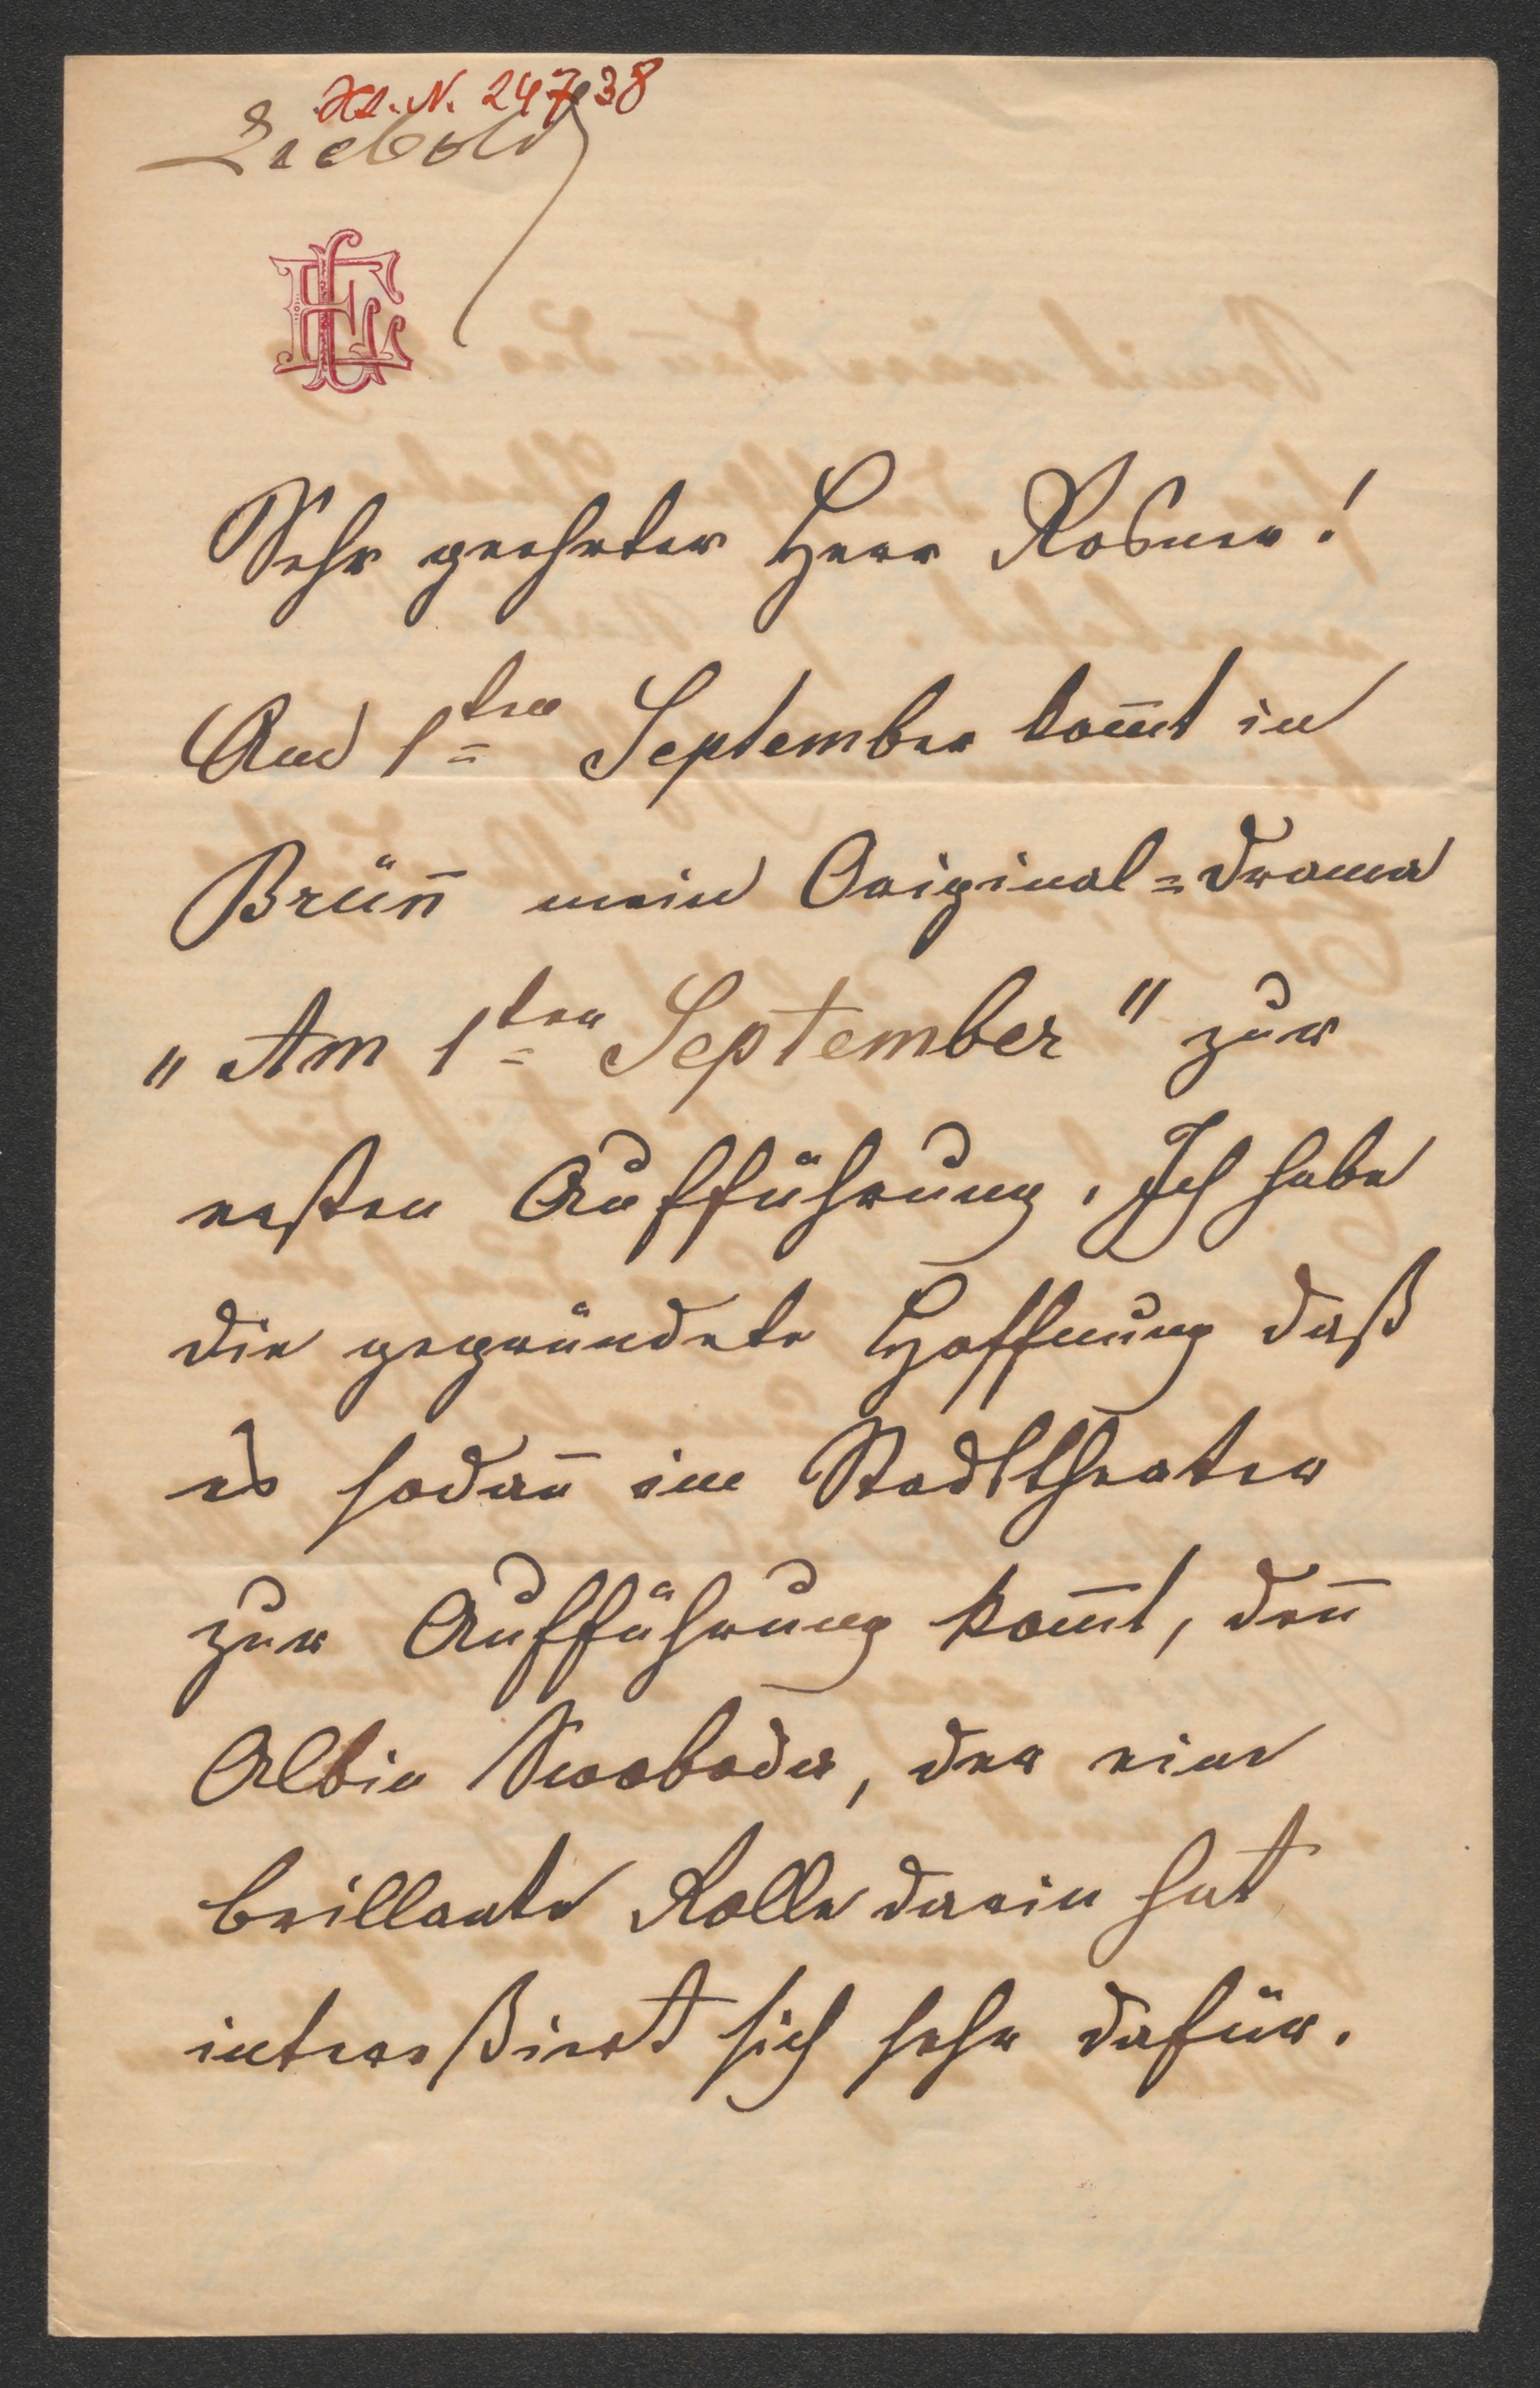 H.I.N. 24738
Liebold
EL
Sehr geehrter Herr Rosner!
Am 1ten September kom̄t in
Brün̄ mein Original=Drama
„Am 1ten September" zur
ersten Aufführung. Ich habe
die gegründete Hoffnung daß
es sodan̄ im Stadttheater
zur Aufführung kom̄t, den̄
Albin Swoboda, der eine
brillante Rolle darin hat
intereßiert sich sehr dafür.